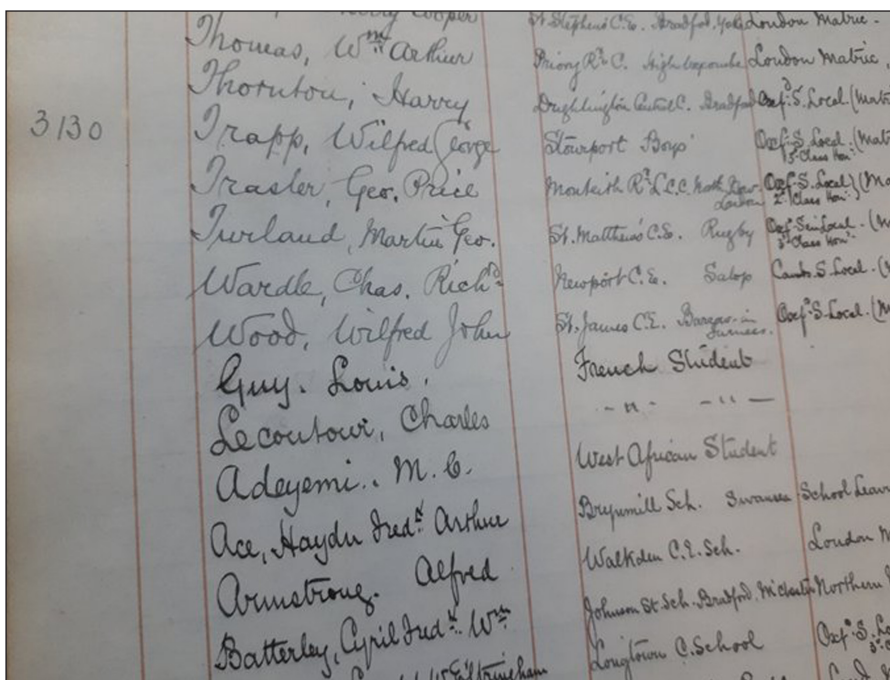 Cooper St Stephens C.E. Bradford, London Matric.
Thomas, Wm Arthur Priory Rd C. High Wycombe London Matric,
Thornton, Harry Drighlington Central C. Bradford Oxfd S. Local. (Matric
3130 Trapp, Wilfred George Stourport Boys' Oxf. S. Local. (Mat
3rd Class Hon.
Trasler, Geo. Price Monteith Rd L.C.C. North Bow, London Oxfd S. Local} (Ma
2nd Class Hon.
Turland, Martin Geo. St. Matthew's C.E. Rugby Oxfd Sen Local. (M
3rd Class Hon.
Wardle, Chas. Richd Newport C.E. Salop Camb. S. Local. (M
Wood, Wilfred John St. James C.E. Barrow-in-Furness. Oxfd S. Local. (M
Guy. Louis. French Student
Lecoutour, Charles - " - - " -
Adeyemi. M. C. West African Student
Ace, Haydn Fredk Arthur Brynmill Sch. Swansea School Leav
Armstrong. Alfred Walkden C.E. Sch. London M
Batterley, Cyril Fredk Wm Johnson St. Sch. Bradford, Manchester Northern
Longtown C. School Oxfd S. Lo